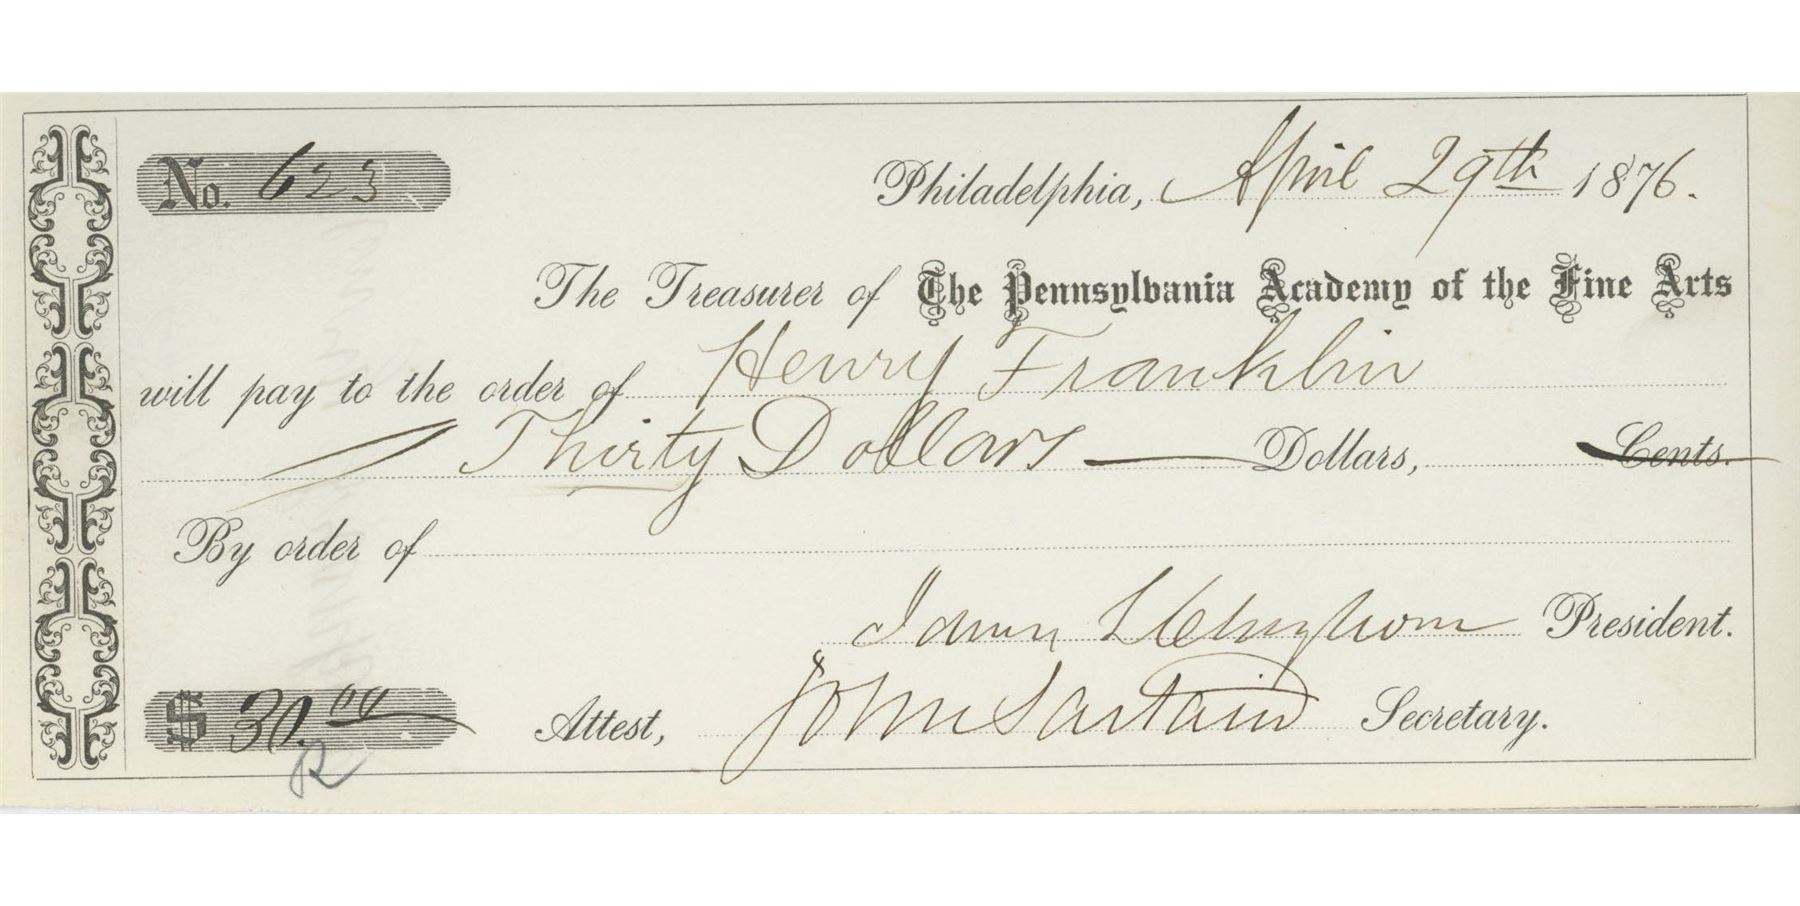 No. 623
Philadelphia, April 29th 1876.
The Treasurer of The Pennsylvania Academy of the Fine Arts
will pay to the order of Henry Franklin
Thirty Dollars — Dollars, Cents.
By order of
James L Claghorn President.
$ 30.00 Attest, John Sartain Secretary.